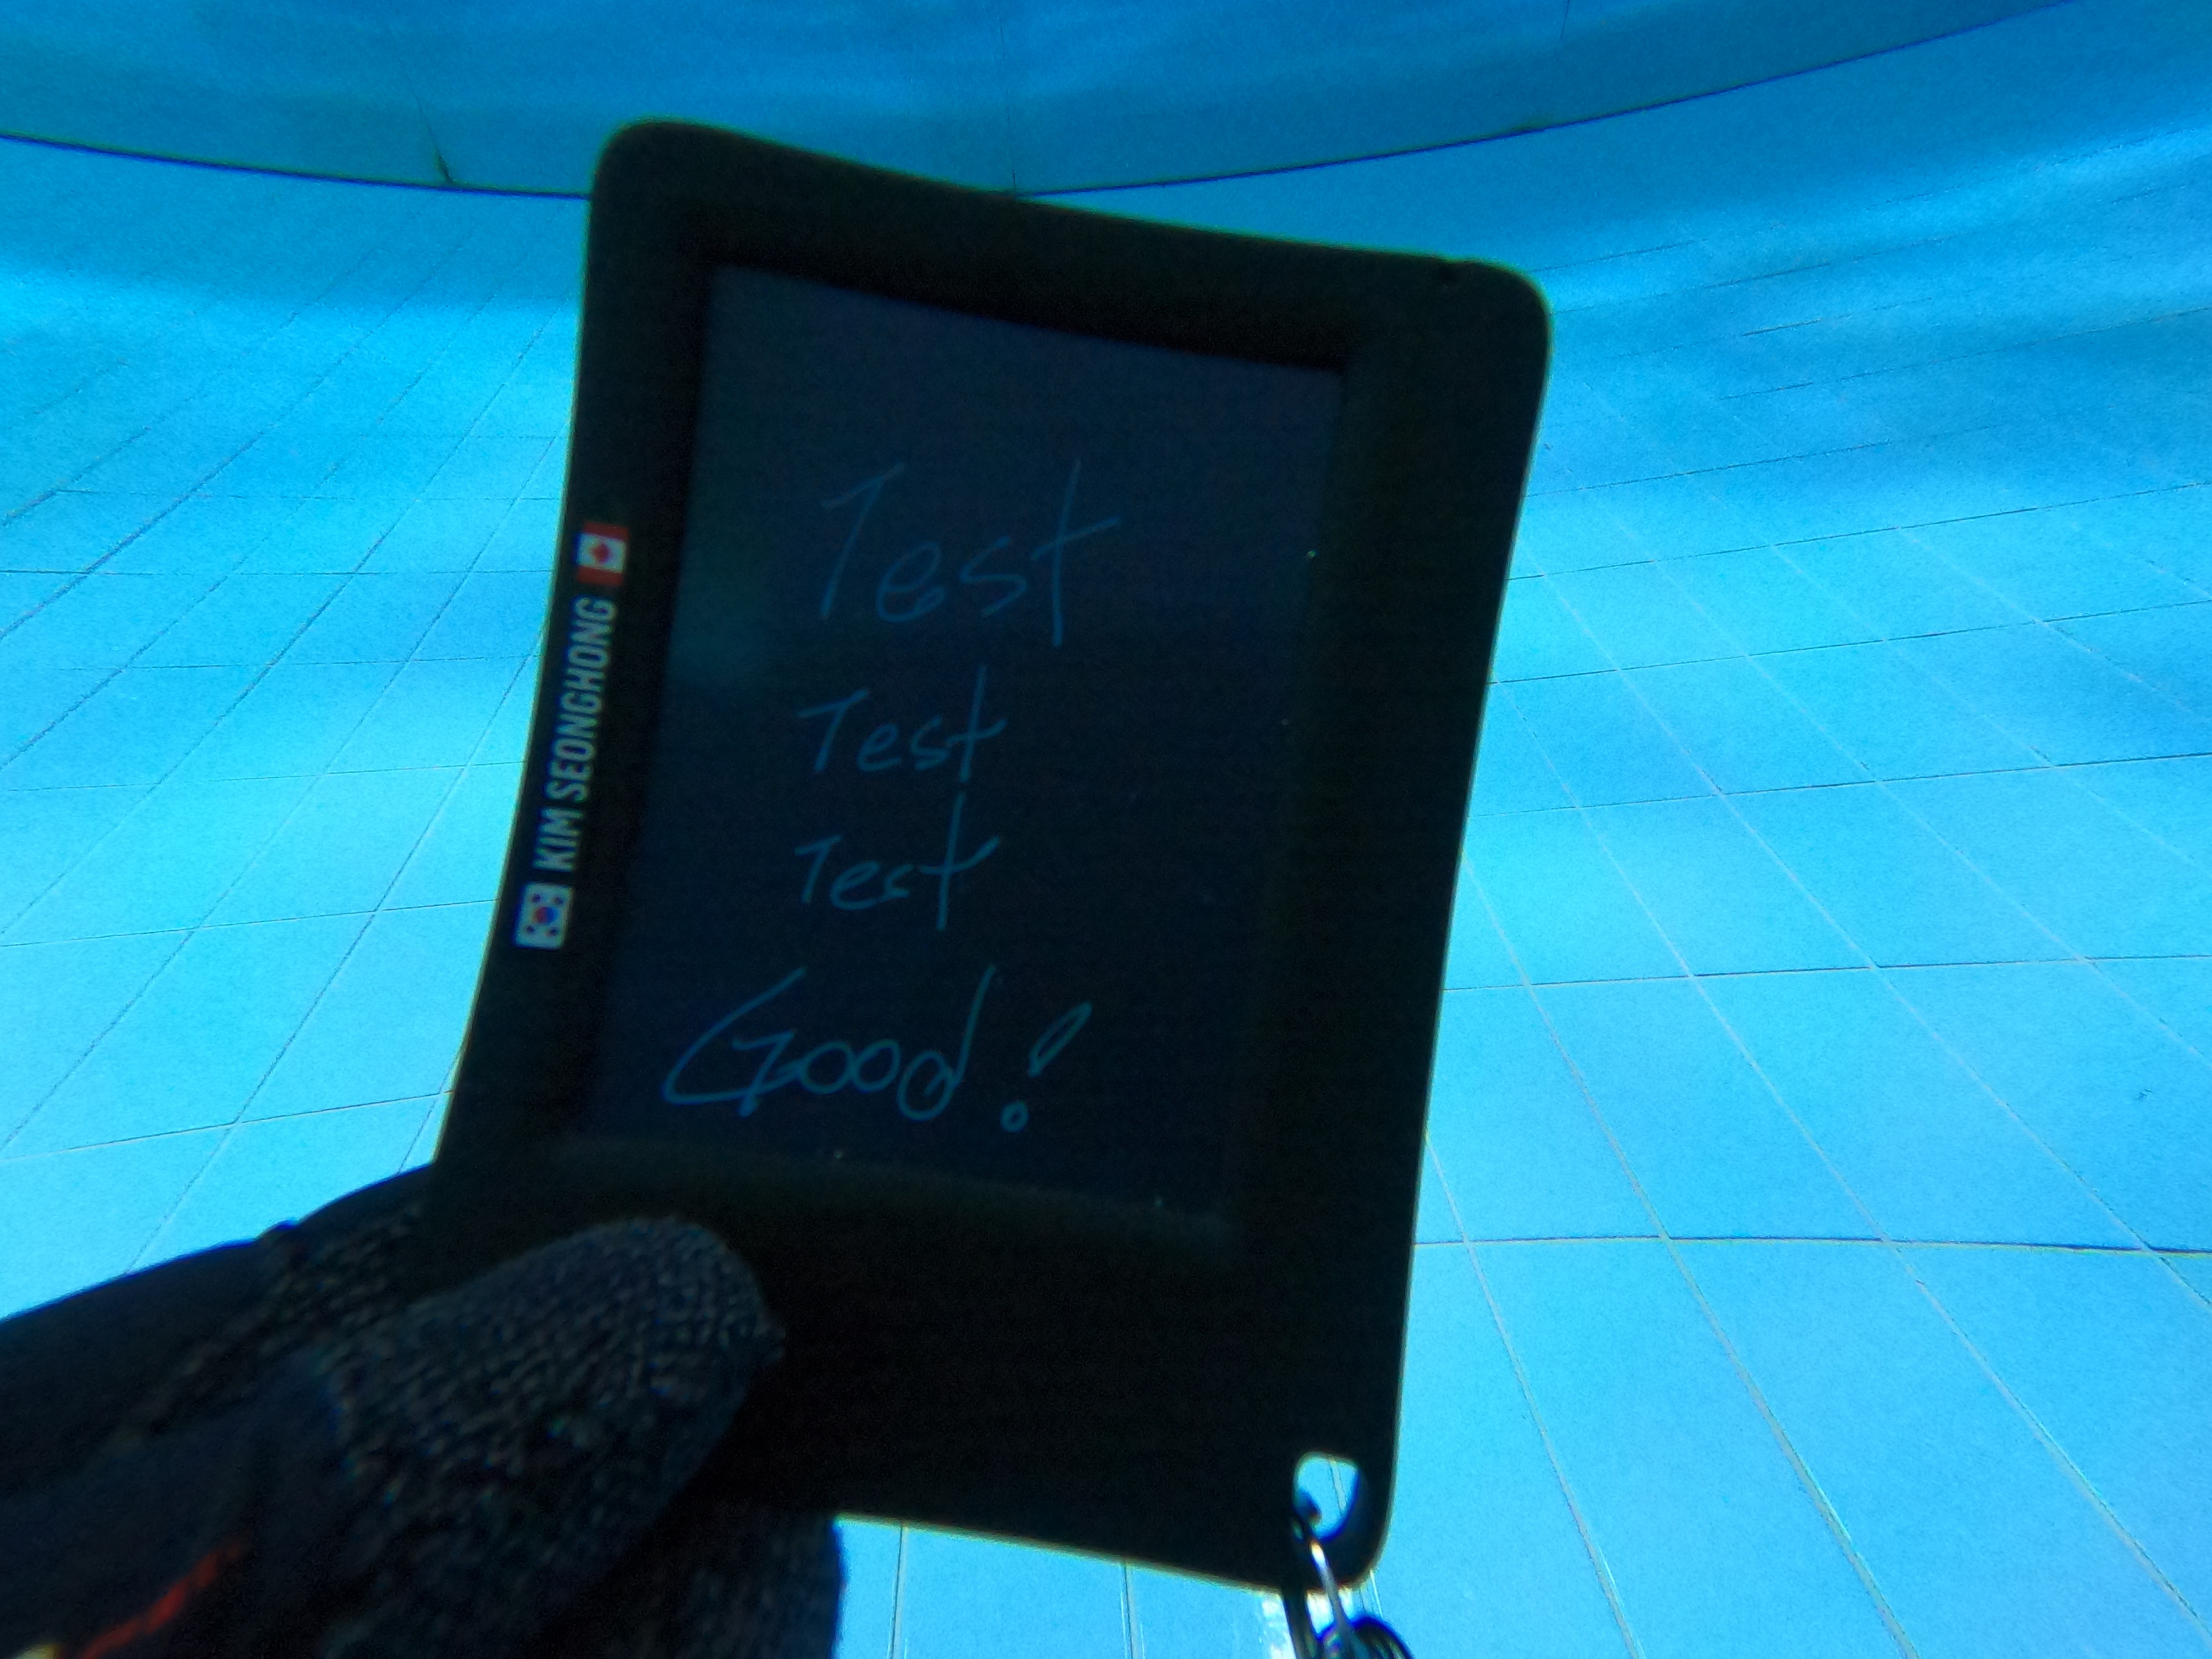 Test
Test
Test
Good!
KIM SEONGHONG